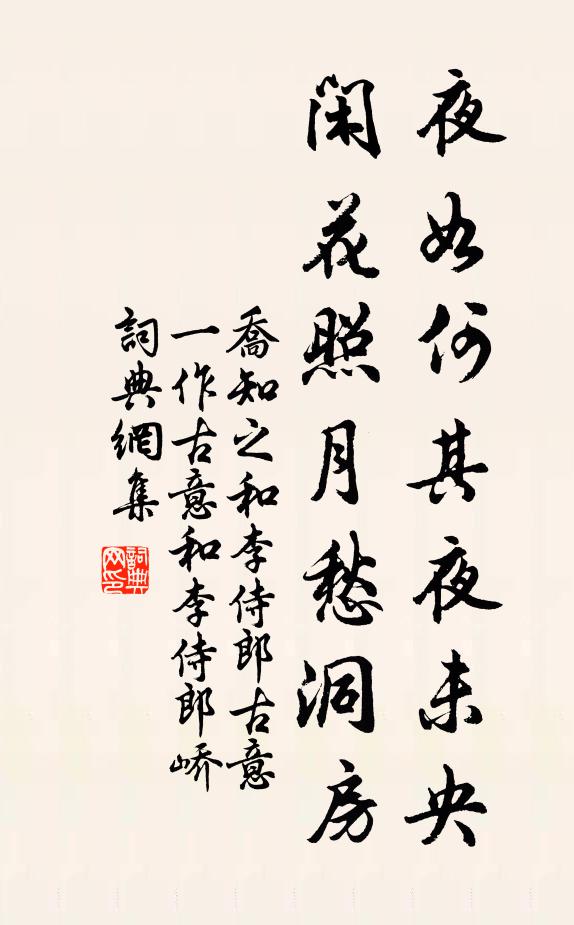 夜如何其夜未央
閑花照月愁洞房
喬知之和李侍郎古意
一作古意和李侍郎嶠
詞典網集
詞典網印